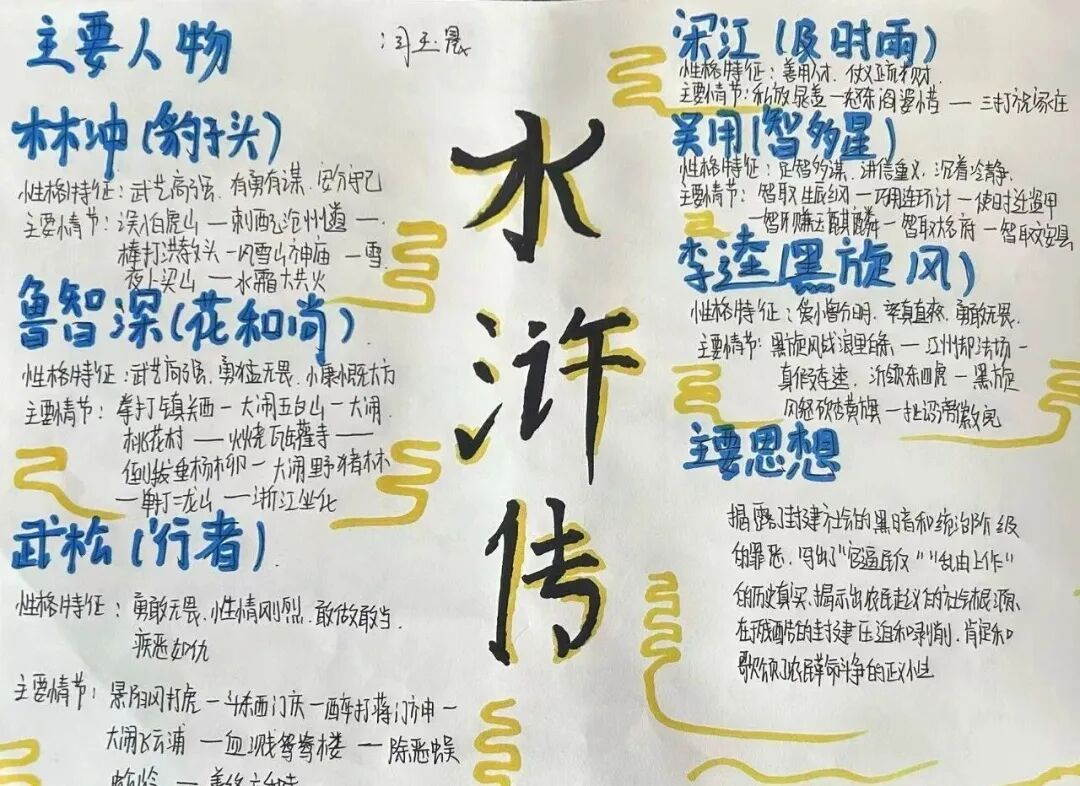 主要人物
闫玉晟
林冲(豹子头)
性格特征：武艺高强、有勇有谋、安分守己
主要情节：误闯白虎山—刺配沧州道—
棒打洪教头—风雪山神庙—雪
夜上梁山—水霜大共火
鲁智深(花和尚)
性格特征：武艺高强、勇猛无畏、小康慨大方
主要情节：拳打镇关西—大闹五台山—大闹
桃花村—火烧瓦罐寺—
倒拔垂杨柳—大闹野猪林
—单打二龙山—浙江坐化
武松(行者)
性格特征：勇敢无畏、性情刚烈、敢做敢当、
疾恶如仇
主要情节：景阳冈打虎—斗杀西门庆—醉打蒋门神—
大闹飞云浦—血溅鸳鸯楼—除恶蜈
蚣岭
水浒传
宋江(及时雨)
性格特征：善用人才、仗义疏财
主要情节：私放晁盖—怒杀阎婆惜—三打祝家庄
吴用(智多星)
性格特征：足智多谋、讲信重义、沉着冷静
主要情节：智取生辰纲—巧用连环计—使时迁盗甲
—智赚玉麒麟—智取大名府—智取文安县
李逵(黑旋风)
性格特征：爱憎分明、率真直爽、勇敢无畏
主要情节：黑旋风战浪里白条—江州劫法场—
真假李逵、沂岭杀四虎—黑旋
风怒砍杏黄旗—扯诏骂钦差
主要思想
揭露了封建社会的黑暗和统治阶级
的罪恶，写出了"官逼民反""乱由上作"
的历史真实，揭示出农民起义的社会根源，
在于残酷的封建压迫和剥削，肯定和
歌颂了农民革命斗争的正义性